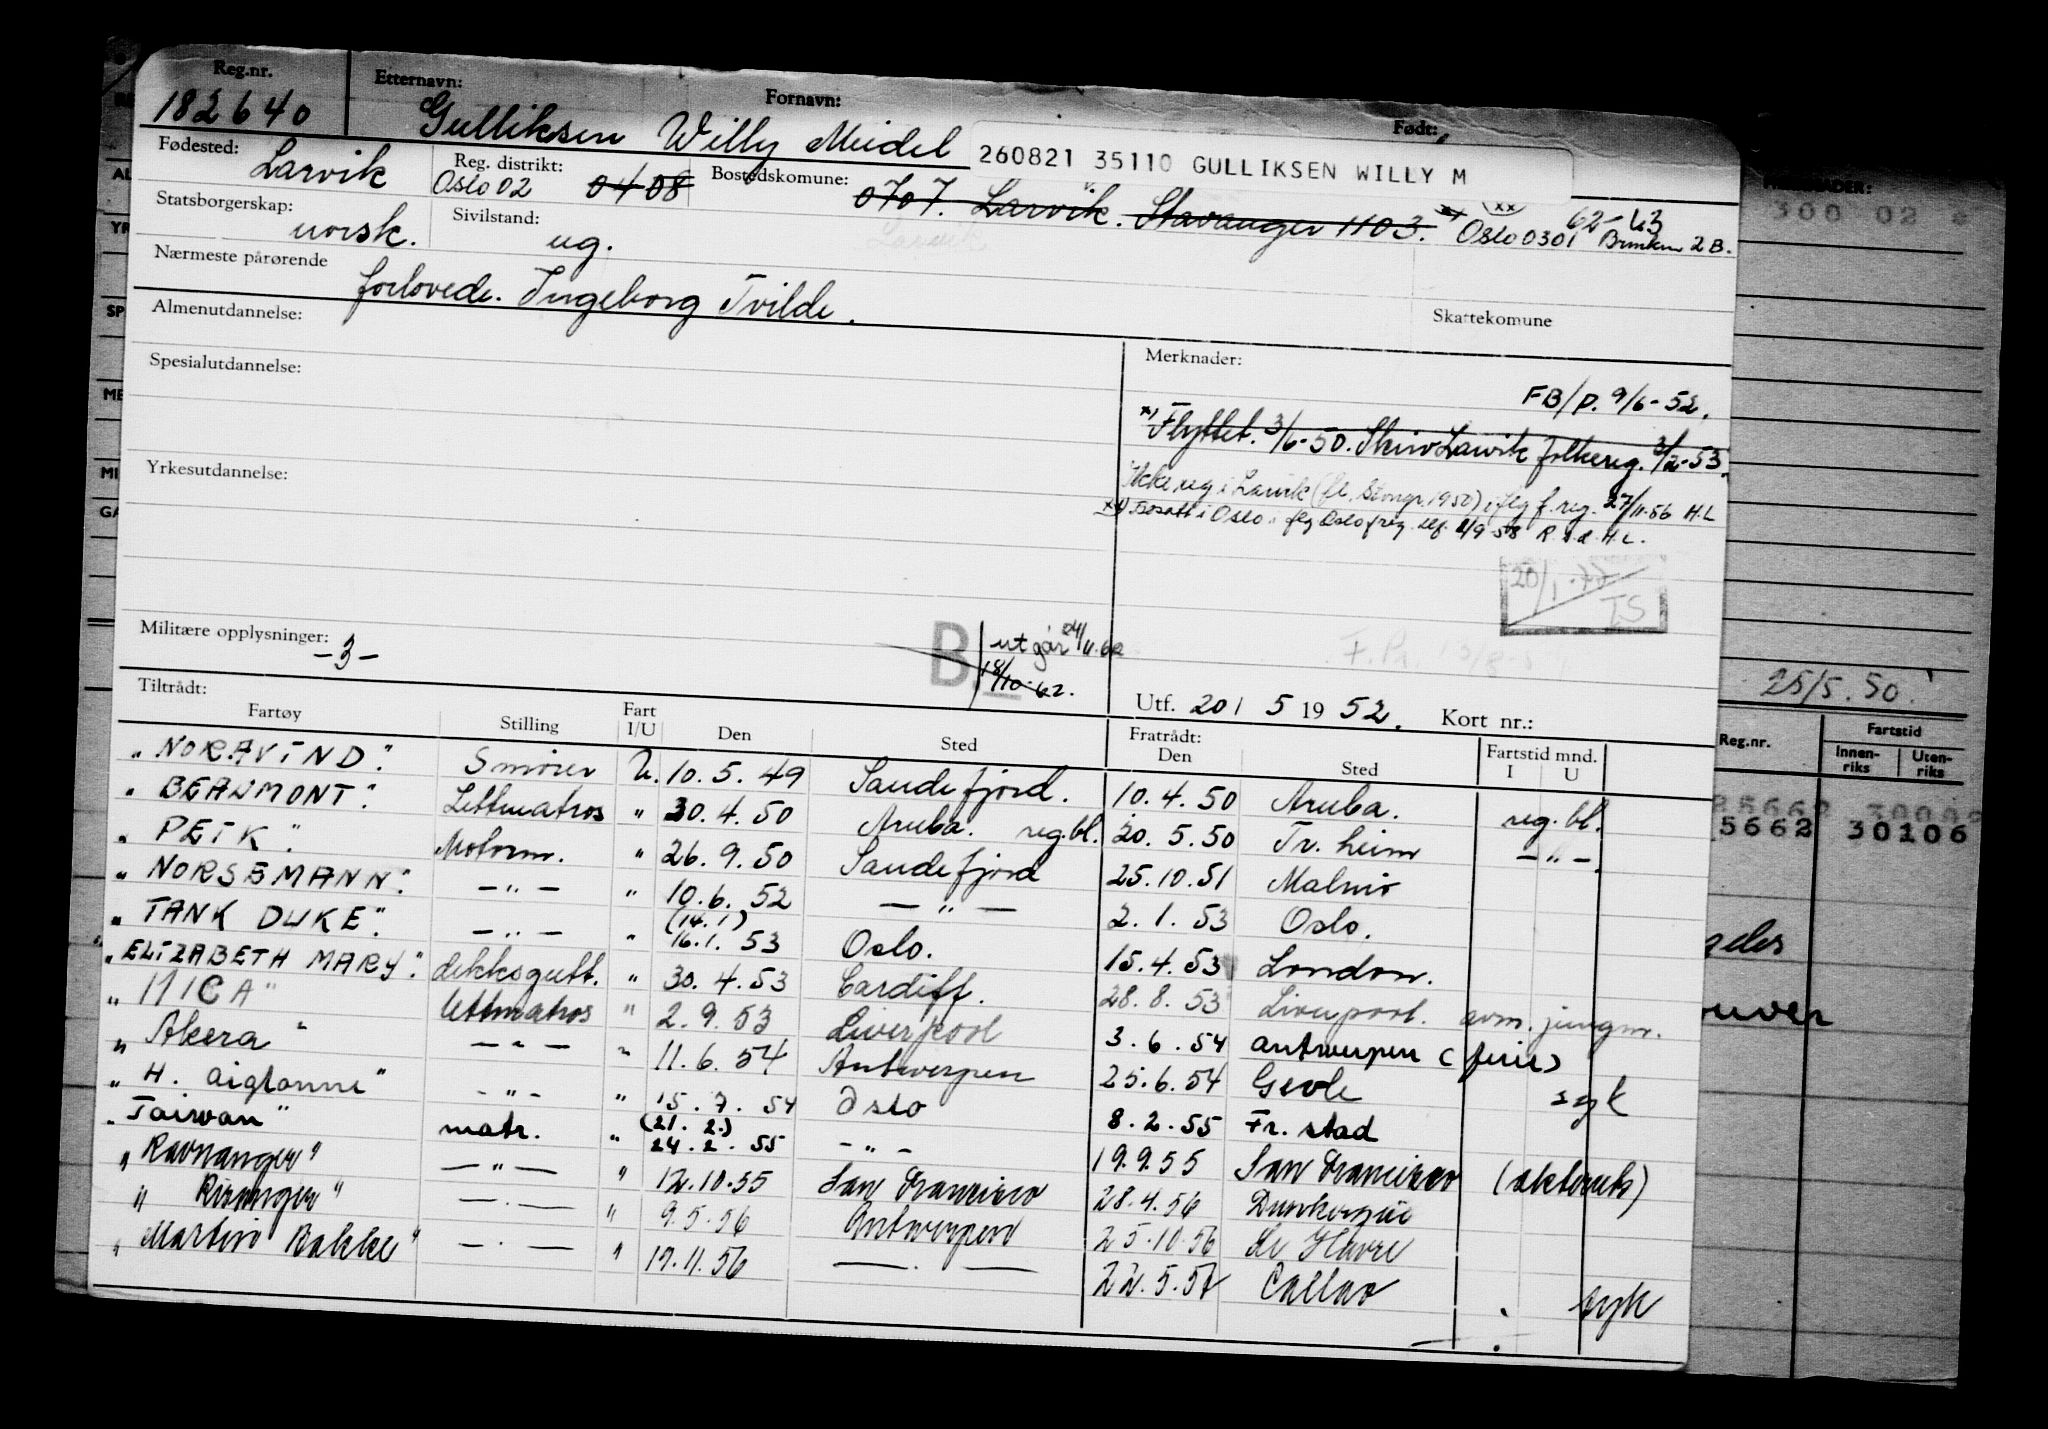 Reg.nr. Etternavn: Fornavn: Født:
182640 Gulliksen Willy Meidel 260821 35110 GULLIKSEN WILLY M
Fødested: Larvik Reg. distrikt: Oslo 02 0408 Bostedskomune: 0707. Larvik. Stavanger 1103. xx 62-63 Oslo 0301
Statsborgerskap: norsk. Sivilstand: ug.
Nærmeste pårørende forlovede. Ingeborg Tvilde.
Almenutdannelse: Skattekomune
Spesialutdannelse: Merknader:
FB/P. 9/6-52.
x) Flyttet. 3/6-50. Skriv Larvik folkereg. 3/2-53.
Yrkesutdannelse: Ikke reg i Larvik 27/11-56 H.L
xx) Bosatt i Oslo
20/1-77
TS
Militære opplysninger: -3- B utgår 24/11.62
18/10-62.
25/5.50.
Tiltrådt: Utf. 20/5 1952. Kort nr.:
Fartøy Stilling Fart I/U Den Sted Fratrådt: Den Sted Fartstid mnd. I U
Reg.nr. Fartstid Innen-riks Uten-riks
"NORAVIND". Smører U. 10.5.49 Sandefjord. 10.4.50 Aruba. reg.bl.
"BEAUMONT". Lettmatros " 30.4.50 Aruba. reg.bl. 20.5.50 Tr.heim -"-.
"PETK". Motorm. " 26.9.50 Sandefjord 25.10.51 Malmø
"NORSEMANN". -"- " 10.6.52 -"- 2.1.53 Oslo.
"TANK DUKE". -"- " (14.1) 16.1.53 Oslo. 15.4.53 London.
"ELIZABETH MARY". dekksgutt. " 30.4.53 Cardiff. 28.8.53 Liverpool. avm. jungm.
"NICA" lettmatros " 2.9.53 Liverpool 3.6.54 Antwerpen (ferie)
"Akera" -"- " 11.6.54 Antwerpen 25.6.54 Gevle syk
"H. Aiglonne" -"- " 15.7.54 Oslo 8.2.55 Fr.stad
"Taiwan" matr. " (21.2.) 24.2.55 -"- 19.9.55 San Francisco (akteruts)
"Ravnanger" -"- " 12.10.55 San Francisco 28.4.56 Dunkerque
" " -"- " 9.5.56 Antwerpen 25.10.56 Le Havre
"Martin Bakke" -"- " 17.11.56 -"- 22.5.57 Callao syk
300 02
5662 30106